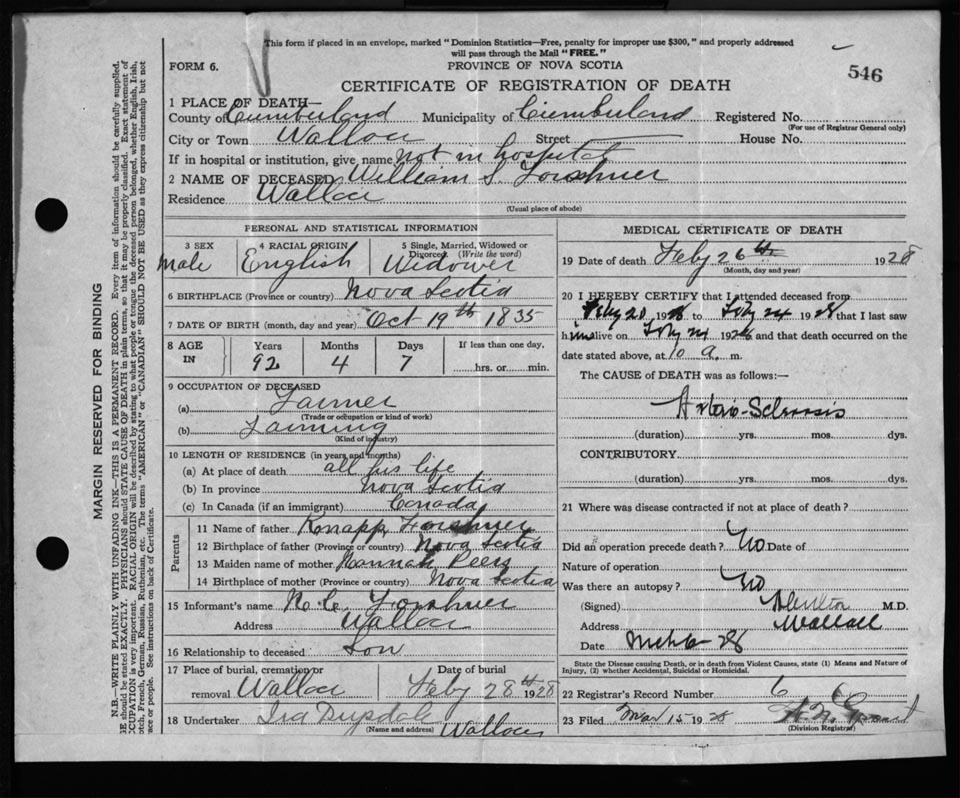 This form if placed in an envelope, marked "Dominion Statistics—Free, penalty for improper use $300," and properly addressed
will pass through the Mail "FREE."
FORM 6. PROVINCE OF NOVA SCOTIA
546
CERTIFICATE OF REGISTRATION OF DEATH
1 PLACE OF DEATH—
County of Cumberland Municipality of Cumberland Registered No.
(For use of Registrar General only)
City or Town Wallace Street House No.
If in hospital or institution, give name not in hospital
2 NAME OF DECEASED William S. Forshner
Residence Wallace
(Usual place of abode)
PERSONAL AND STATISTICAL INFORMATION
3 SEX 4 RACIAL ORIGIN 5 Single, Married, Widowed or
Divorced (Write the word)
Male English Widower
6 BIRTHPLACE (Province or country) Nova Scotia
7 DATE OF BIRTH (month, day and year) Oct 19th 1835
8 AGE IN Years Months Days If less than one day,
92 4 7 hrs. or min.
9 OCCUPATION OF DECEASED
(a) Farmer
(Trade or occupation or kind of work)
(b) Farming
(Kind of industry)
10 LENGTH OF RESIDENCE (in years and months)
(a) At place of death all his life
(b) In province Nova Scotia
(c) In Canada (if an immigrant) Canada
Parents
11 Name of father Knapp Forshner
12 Birthplace of father (Province or country) Nova Scotia
13 Maiden name of mother Hannah Peers
14 Birthplace of mother (Province or country) Nova Scotia
15 Informant's name Forshner
Address Wallace
16 Relationship to deceased Son
17 Place of burial, cremation or Date of burial
removal Wallace Feby 28th 1928
18 Undertaker Ira
(Name and address) Wallace
MEDICAL CERTIFICATE OF DEATH
19 Date of death Feby 26th 1928
(Month, day and year)
20 I HEREBY CERTIFY that I attended deceased from
Feby 20 1928 to Feby 24 1928 that I last saw
him alive on Feby 24 1928 and that death occurred on the
date stated above, at 10 a. m.
The CAUSE of DEATH was as follows:—
Arterio-Sclerosis
(duration) yrs. mos. dys.
CONTRIBUTORY
(duration) yrs. mos. dys.
21 Where was disease contracted if not at place of death?
Did an operation precede death? No Date of
Nature of operation
Was there an autopsy? No
(Signed) M.D.
Address Wallace
Date 28
State the Disease causing Death, or in death from Violent Causes, state (1) Means and Nature of
Injury, (2) whether Accidental, Suicidal or Homicidal.
22 Registrar's Record Number 6
23 Filed Mar 15 1928 Grant
(Division Registrar)
MARGIN RESERVED FOR BINDING
N.B. WRITE PLAINLY WITH UNFADING INK—THIS IS A PERMANENT RECORD. Every item of information should be carefully supplied.
GE should be stated EXACTLY. PHYSICIANS should STATE CAUSE OF DEATH in plain terms, so that it may be properly classified. Exact statement of
CCUPATION is very important. RACIAL ORIGIN will be described by stating to what people or tongue the deceased person belonged, whether English, Irish,
otch, French, German, Russian, Ruthenian, etc. The terms "AMERICAN" or "CANADIAN" SHOULD NOT BE USED as they express citizenship but not
ace or people. See instructions on back of Certificate.